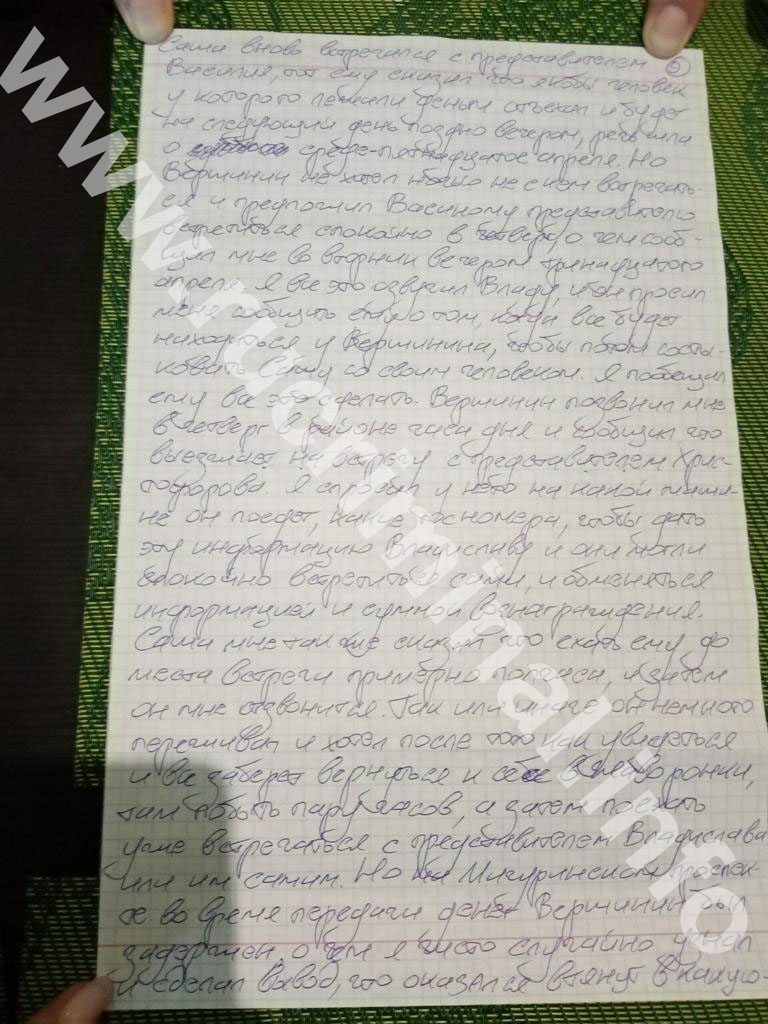 Саша вновь встречался с представителем 5
Василия, тот ему сказал что якобы человек
у которого лежали деньги отъехал и будет
на следующий день поздно вечером, речь шла
о среде-пятнадцатое апреля. Но
Вершинин не хотел ночью не с кем встречать-
ся и предложил Васиному представителю
встретиться спокойно в четверг о чем сооб-
щил мне во вторник вечером тринадцатого
апреля. Я все это озвучил Владу, и он просил
меня сообщить ему о том, когда все будет
находиться у Вершинина, чтобы потом состы-
ковать Сашу со своим человеком. Я пообещал
ему все это сделать. Вершинин позвонил мне
в четверг в районе часа дня и сообщил что
выезжает на встречу с представителем Хрис-
тофорова. Я спросил у него на какой маши-
не он поедет, какие госномера, чтобы дать
эту информацию Владиславу и они могли
спокойно встретиться сами, и обменяться
информацией и суммой вознаграждения.
Саша мне так же сказал что ехать ему до
места встречи примерно полчаса, и затем
он мне отзвонится. Так или иначе он немного
переживал и хотел после того как увидеться
и все заберет вернуться к себе в
там побыть пару часов, а затем поехать
уже встречаться с представителем Владислава
или им самим. Но на Мичуринском проспек-
те во время передачи денег Вершинин был
задержан, о чем я чисто случайно узнал
и сделал вывод, что оказался втянут в какую-
www.rucriminal.info